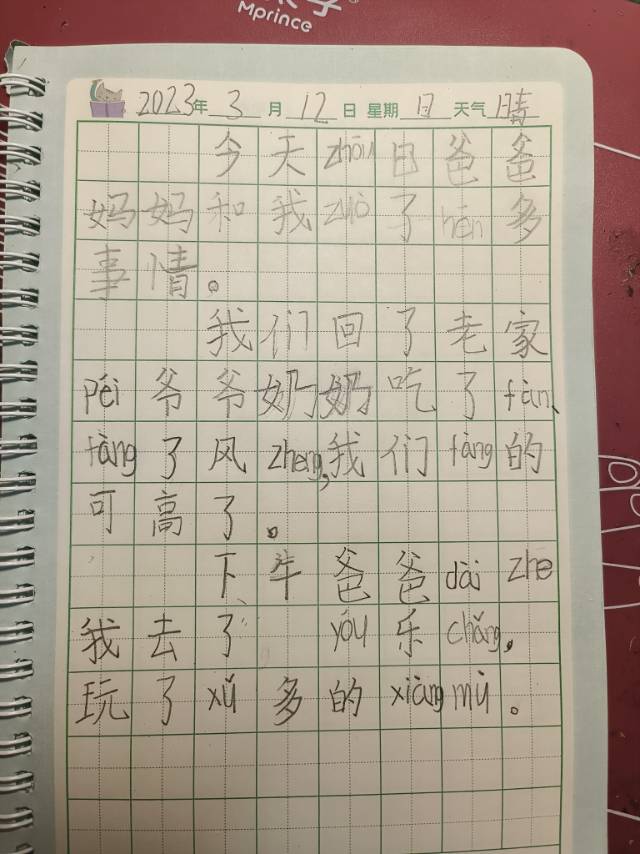 Mprince
2023年 3 月 12 日 星期 日 天气 晴
今天zhōu日爸爸
妈妈和我zuò了hěn多
事情。
我们回了老家
péi爷爷奶奶吃了fàn、
fàng了风zheng,我们fàng的
可高了。
下午爸爸dài zhe
我去了yóu乐chǎng,
玩了xǔ多的xiàng mù。